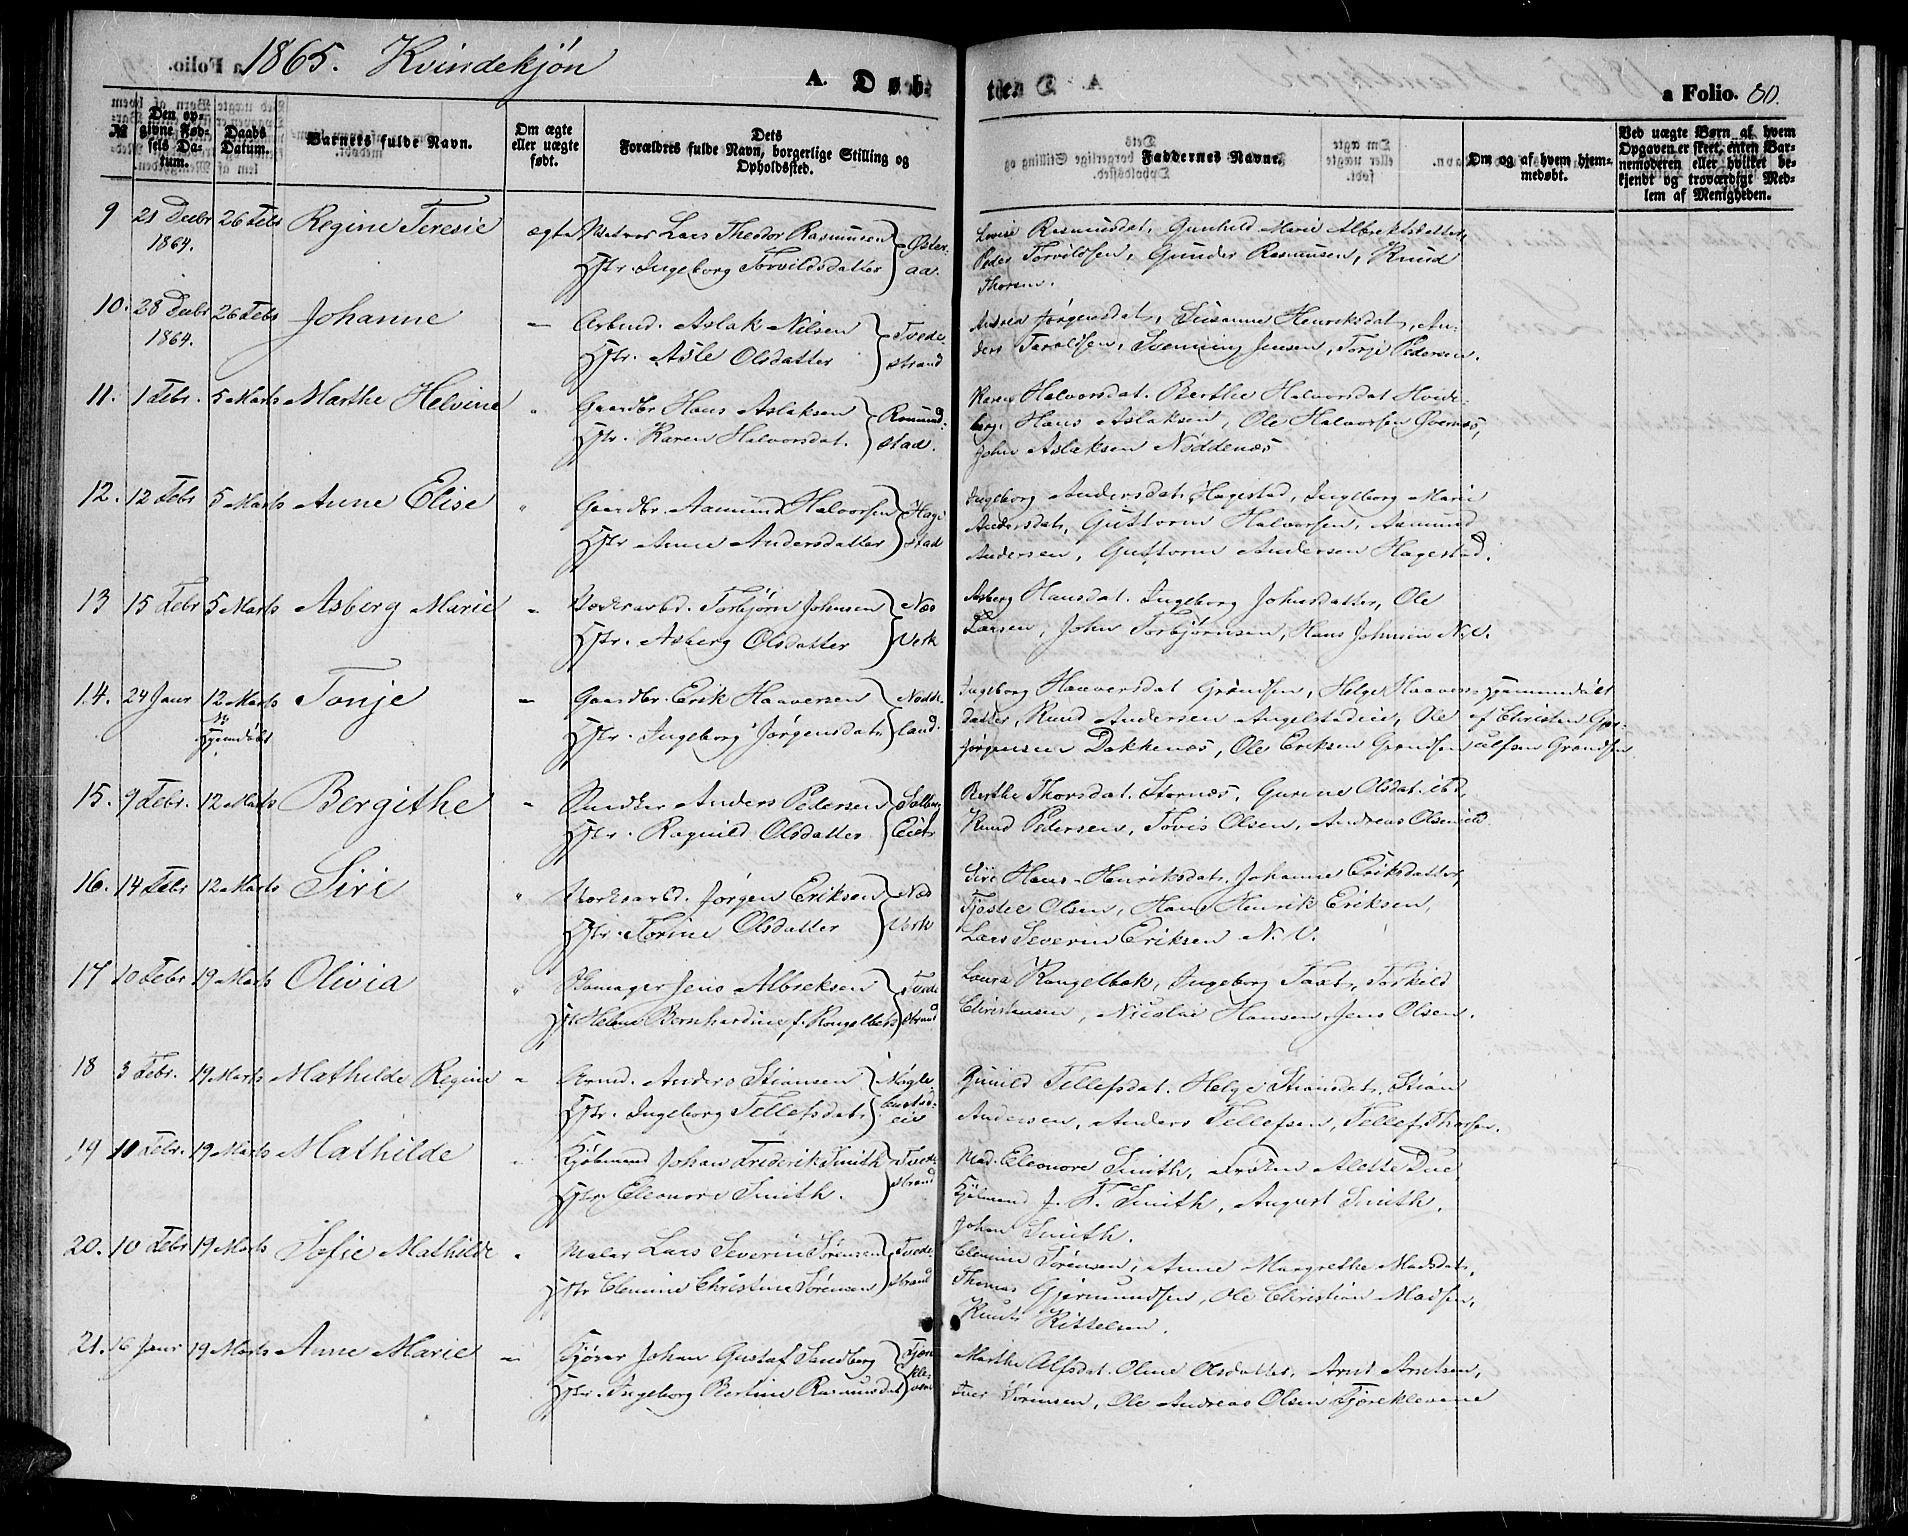 1865. Kvindekjøn
A. Døbte.
a Folio. 80.
№
Den opgivne Fødsels Datum.
Daabs Datum.
Barnets fulde Navn.
Om ægte eller uægte født.
Dets Forældres fulde Navn, borgerlige Stilling og Opholdssted.
Faddernes Navne.
Om og af hvem hjemmedøbt.
Ved uægte Børn af hvem Opgaven er skeet, enten Barnemoderen eller hvilket bekjendt og troværdigt Medlem af Menigheden.
9 21 Decbr 26 Febr Regine Teresie ægte Lars Theodor Rasmussen Øster-
1864. Hstr. Ingeborg Torvildsdatter aa.
Lovise Rasmusdat, Gunhild Marie Albrektsdatter,
Peder Torvildsen, Gunder Rasmussen, Knud
Thorsen.
10. 28 Decbr 26 Febr Johanne " Arbmd. Aslak Nilsen Tvede-
1864. Hstr. Asle Olsdatter strand
Andrea Jørgensdat, Susanne Henriksdat, An-
ders Taraldsen, Svenning Jensen, Torje Pedersen.
11. 1 Febr. 5 Marts Marthe Helvine " Gaardbr Hans Aslaksen Romund-
Hstr. Karen Halvorsdat. stad.
Karen Halvorsdat. Berthe Halvorsdat Hvide-
berg. Hans Aslaksen, Ole Halvorsen Overnæs,
John Aslaksen Noddenæs
12. 12 Febr 5 Marts Anne Elise " Gaardbr. Aamund Halvorsen Hage-
Hstr Anne Andersdatter stad
Ingeborg Andersdat. Hagestad, Ingeborg Marie
Andersdat, Guttorm Halvorsen, Asmund
Andersen, Guttorm Andersen Hagestad.
13 15 Febr 5 Marts Asberg Marie " Værksarbd. Torbjørn Johnsen Næs
Hstr. Asberg Olsdatter Verk
Asberg Hansdat. Ingeborg Johnsdatter, Ole
Larsen, John Torbjørnsen, Hans Johnsen N.V.
14. 24 Janr 12 Marts Tonje " Gaardbr. Erik Haaversen Nodde-
Hjemdøbt Hstr. Ingeborg Jørgensdat. land.
Ingeborg Haaversdat Grøndsen, Helge Haavers- Hjemmedøbt
datter, Knud Andersen Angelstadeie, Ole af Christen Gjer-
Jørgensen Dakkenæs, Ole Eriksen Grøndsen ulfsen Grøndsen
15. 9 Febr. 12 Marts Bergithe " Snedker Anders Pedersen Solberg
Hstr. Ragnild Olsdatter Eiet
Berthe Thorsdat. Stornæs, Gurine Olsdat. ibd,
Knud Pedersen, Tovis Olsen, Andreas Olsen ibd.
16. 14 Febr 12 Marts Siri " Værksarbd. Jørgen Eriksen Næs
Hstr. Torine Olsdatter Verk
Siri Hans-Henriksdat. Johanne Eriksdatter,
Tjøstel Olsen, Hans Henrik Eriksen,
Lars Severin Eriksen N.V.
17 10 Febr 19 Marts Olivia " Jens Albreksen Tvede
Helene Bernhardine f. Rongelbek strand
Laura Rongelbak, Ingeborg Taxt, Torkild
Christensen, Nicolai Hansen, Jens Olsen.
18 3 Febr. 19 Marts Mathilde Regine " Anders Stiansen Nøgle-
Hstr. Ingeborg Tellefsdat. eie
Gunild Tellefsdat. Helge Stiansdat. Stian
Andersen, Anders Tellefsen, Tellef Thorsen.
19 10 Febr. 19 Marts Mathilde " Kjøbmand Johan Frederik Smith Tvede
Hstr. Eleonore Smith. strand
Mad. Eleonore Smith, Frøken Alette Due,
Kjøbmand J. F. Smith, August Smith,
Johan Smith.
20. 10 Febr 19 Marts Sofie Mathilde " Maler Lars Severin Sørensen Tvede-
Hstr Clemine Christine Sørensen strand
Clemine Sørensen, Anne Margrethe Madsdat,
Thomas Gjermundsen, Ole Christian Madsen,
Knut Kittelsen.
21. 6 Janr 19 Marts Anne Marie " Johan Gustaf Sandberg Kjøre-
Hstr. Ingeborg Bertine Rasmusdat. klevene
Marthe Alfsdat. Oline Olsdatter, Arnt Arntsen,
Iver Sørensen, Ole Andreas Olsen Kjøreklevene